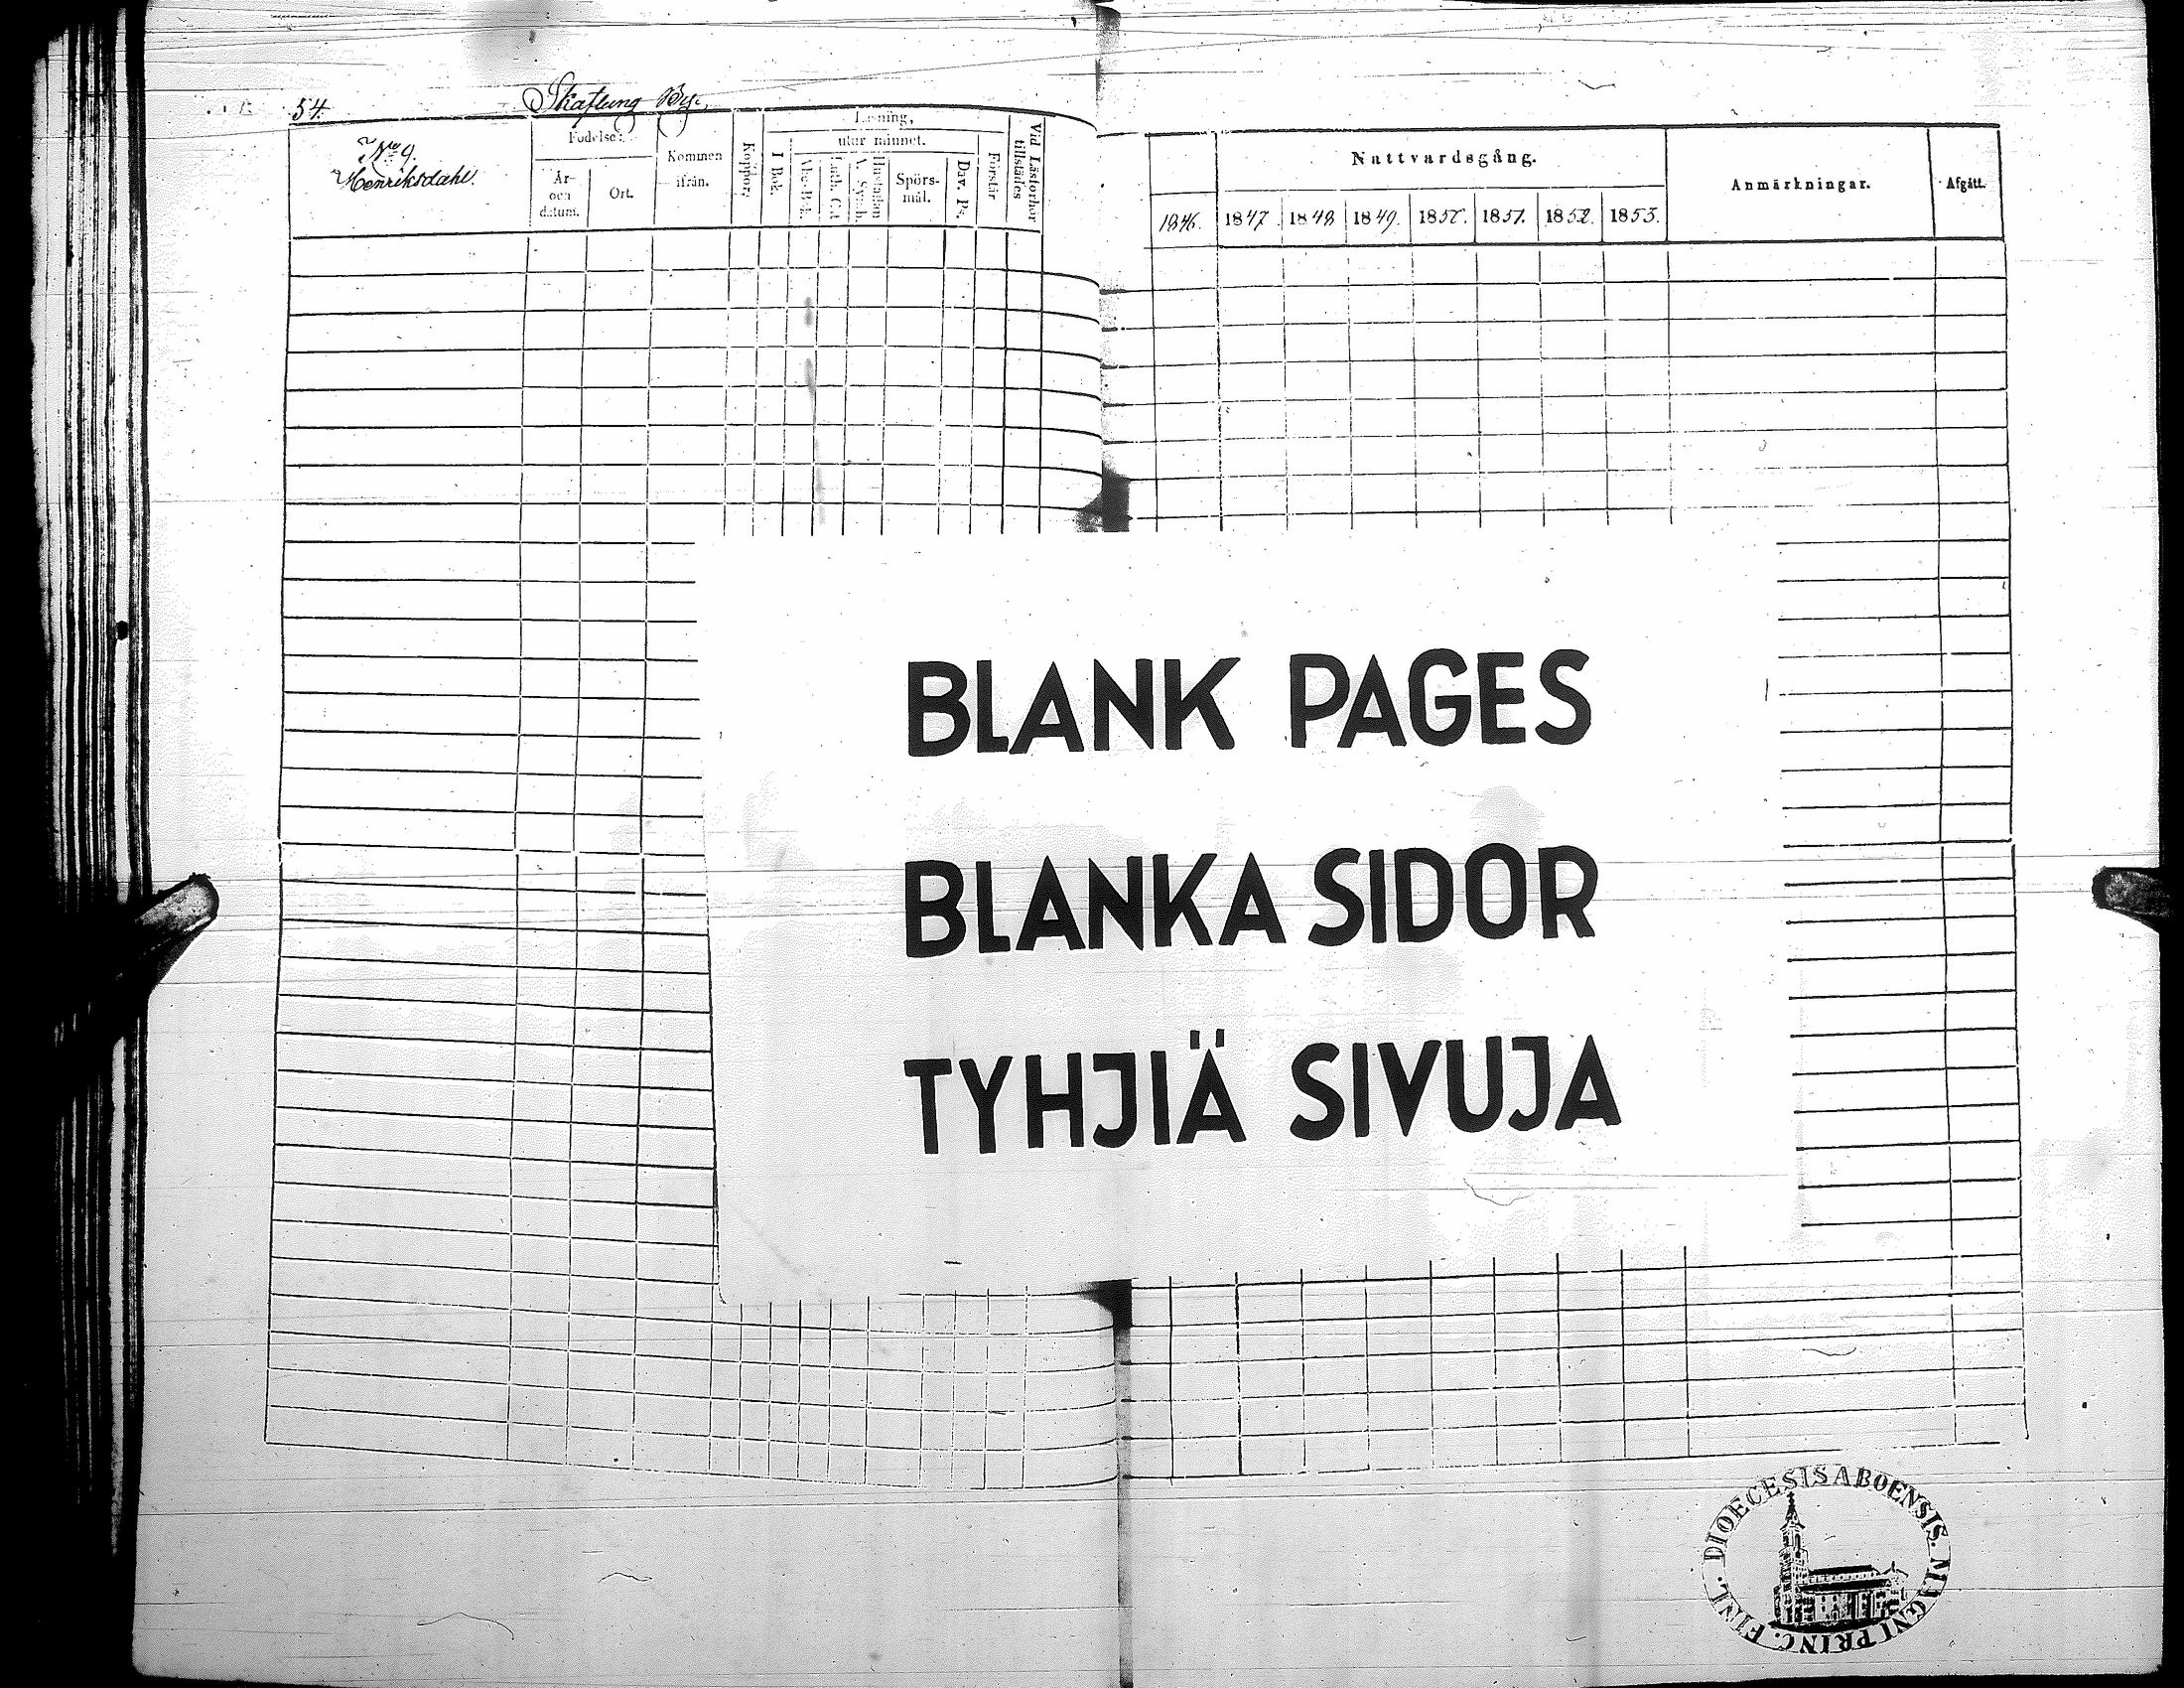 54.
Skaftung By.
No 9.
Henriksdahl.
Födelse:
År- och datum.
Ort.
Kommen ifrån.
Koppor.
Läsning,
utur minnet.
I Bok.
Abc-Bok.
Luth. Cat.
A. Symb.
Hustaflan
Spörsmål.
Dav. Ps.
Förstår
Vid Läsförhör tillstädes
Nattvardsgång.
1846.
1847.
1848
1849.
1850.
1851.
1852.
1853.
Anmärkningar.
Afgått.
BLANK PAGES
BLANKA SIDOR
TYHJIÄ SIVUJA
DIOECESIS ABOENSIS. MAGNI PRINC. FINL.